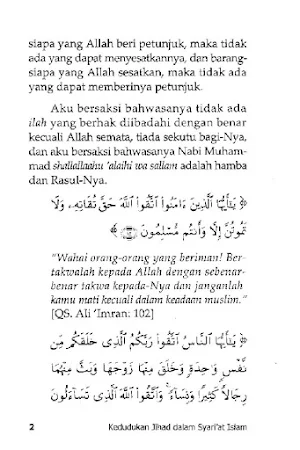 siapa yang Allah beri petunjuk, maka tidak
ada yang dapat menyesatkannya, dan barang-
siapa yang Allah sesatkan, maka tidak ada
yang dapat memberinya petunjuk.
Aku bersaksi bahwasanya tidak ada
ilah yang berhak diibadahi dengan benar
kecuali Allah semata, tiada sekutu bagi-Nya,
dan aku bersaksi bahwasanya Nabi Muham-
mad shallallaahu 'alaihi wa sallam adalah hamba
dan Rasul-Nya.
﴿ يَٰٓأَيُّهَا ٱلَّذِينَ ءَامَنُوا۟ ٱتَّقُوا۟ ٱللَّهَ حَقَّ تُقَاتِهِۦ وَلَا
تَمُوتُنَّ إِلَّا وَأَنتُم مُّسْلِمُونَ ١٠٢ ﴾
"Wahai orang-orang yang beriman! Ber-
takwalah kepada Allah dengan sebenar-
benar takwa kepada-Nya dan janganlah
kamu mati kecuali dalam keadaan muslim."
[QS. Ali 'Imran: 102]
﴿ يَٰٓأَيُّهَا ٱلنَّاسُ ٱتَّقُوا۟ رَبَّكُمُ ٱلَّذِى خَلَقَكُم مِّن
نَّفْسٍ وَٰحِدَةٍ وَخَلَقَ مِنْهَا زَوْجَهَا وَبَثَّ مِنْهُمَا
رِجَالًا كَثِيرًا وَنِسَآءً ۚ وَٱتَّقُوا۟ ٱللَّهَ ٱلَّذِى تَسَآءَلُونَ
2 Kedudukan Jihad dalam Syari'at Islam